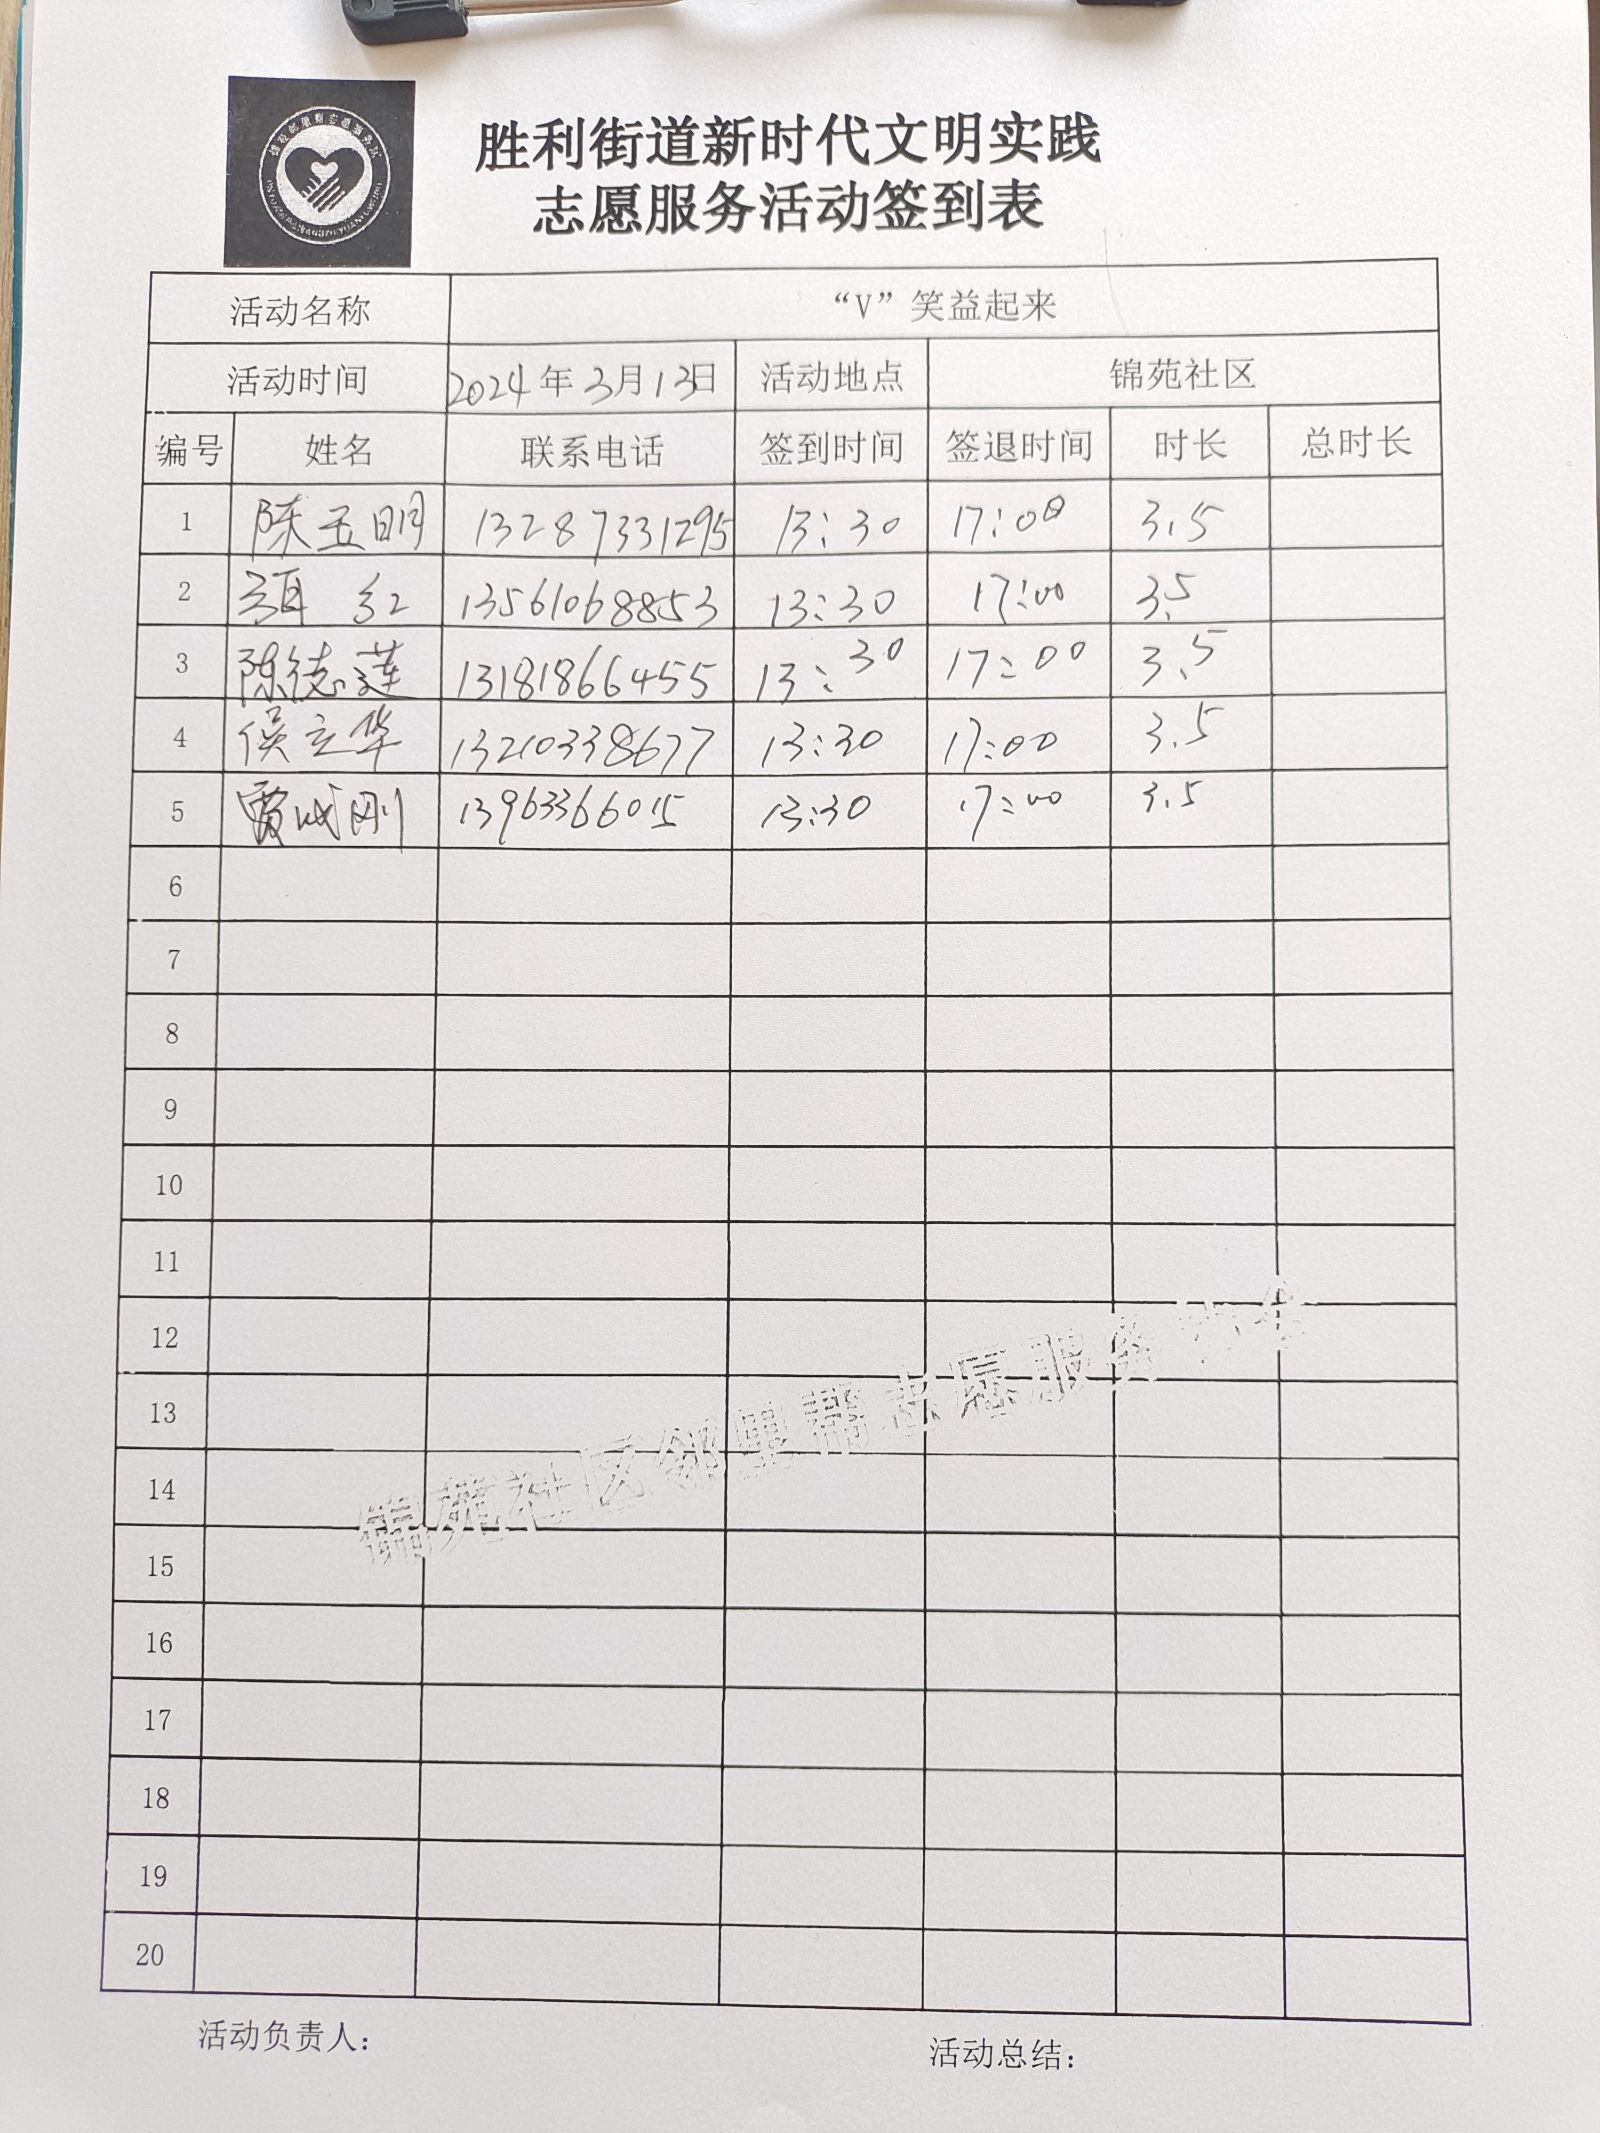 胜利街道新时代文明实践
志愿服务活动签到表
活动名称 “V”笑益起来
活动时间 2024年3月13日 活动地点 锦苑社区
编号 姓名 联系电话 签到时间 签退时间 时长 总时长
1 陈玉明 13287331295 13:30 17:00 3.5
2 红 13561068853 13:30 17:00 3.5
3 陈德莲 13181866455 13:30 17:00 3.5
4 侯立华 13210338677 13:30 17:00 3.5
5 贾成刚 13963366015 13:30 17:00 3.5
6
7
8
9
10
11
12
13
14
15
16
17
18
19
20
锦苑社区邻里帮志愿服务协会
活动负责人: 活动总结: